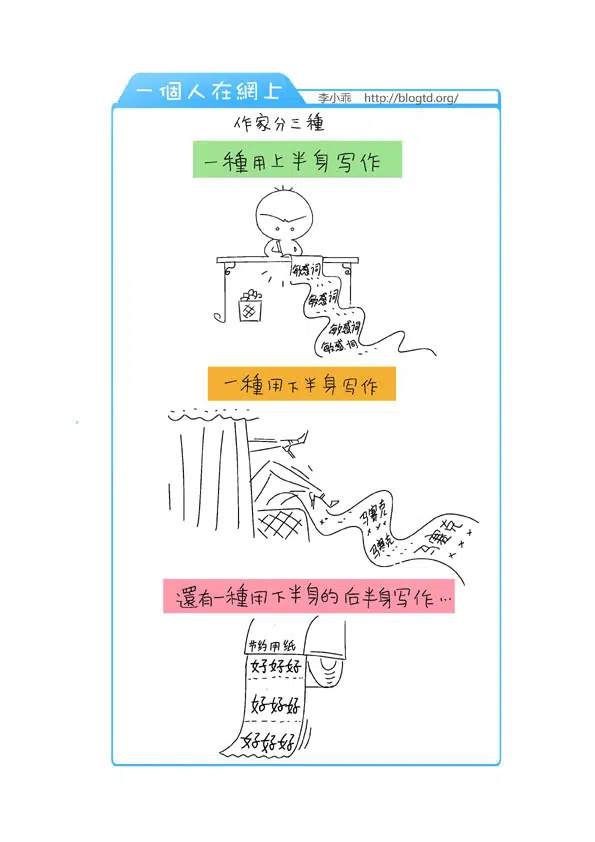 一個人在網上
李小乖 http://blogtd.org/
作家分三種
一種用上半身写作
敏感词
敏感词
敏感词
敏感词
一種用下半身写作
马赛克
马赛克
马赛克
還有一種用下半身的后半身写作…
节约用纸
好好好
好好好
好好好